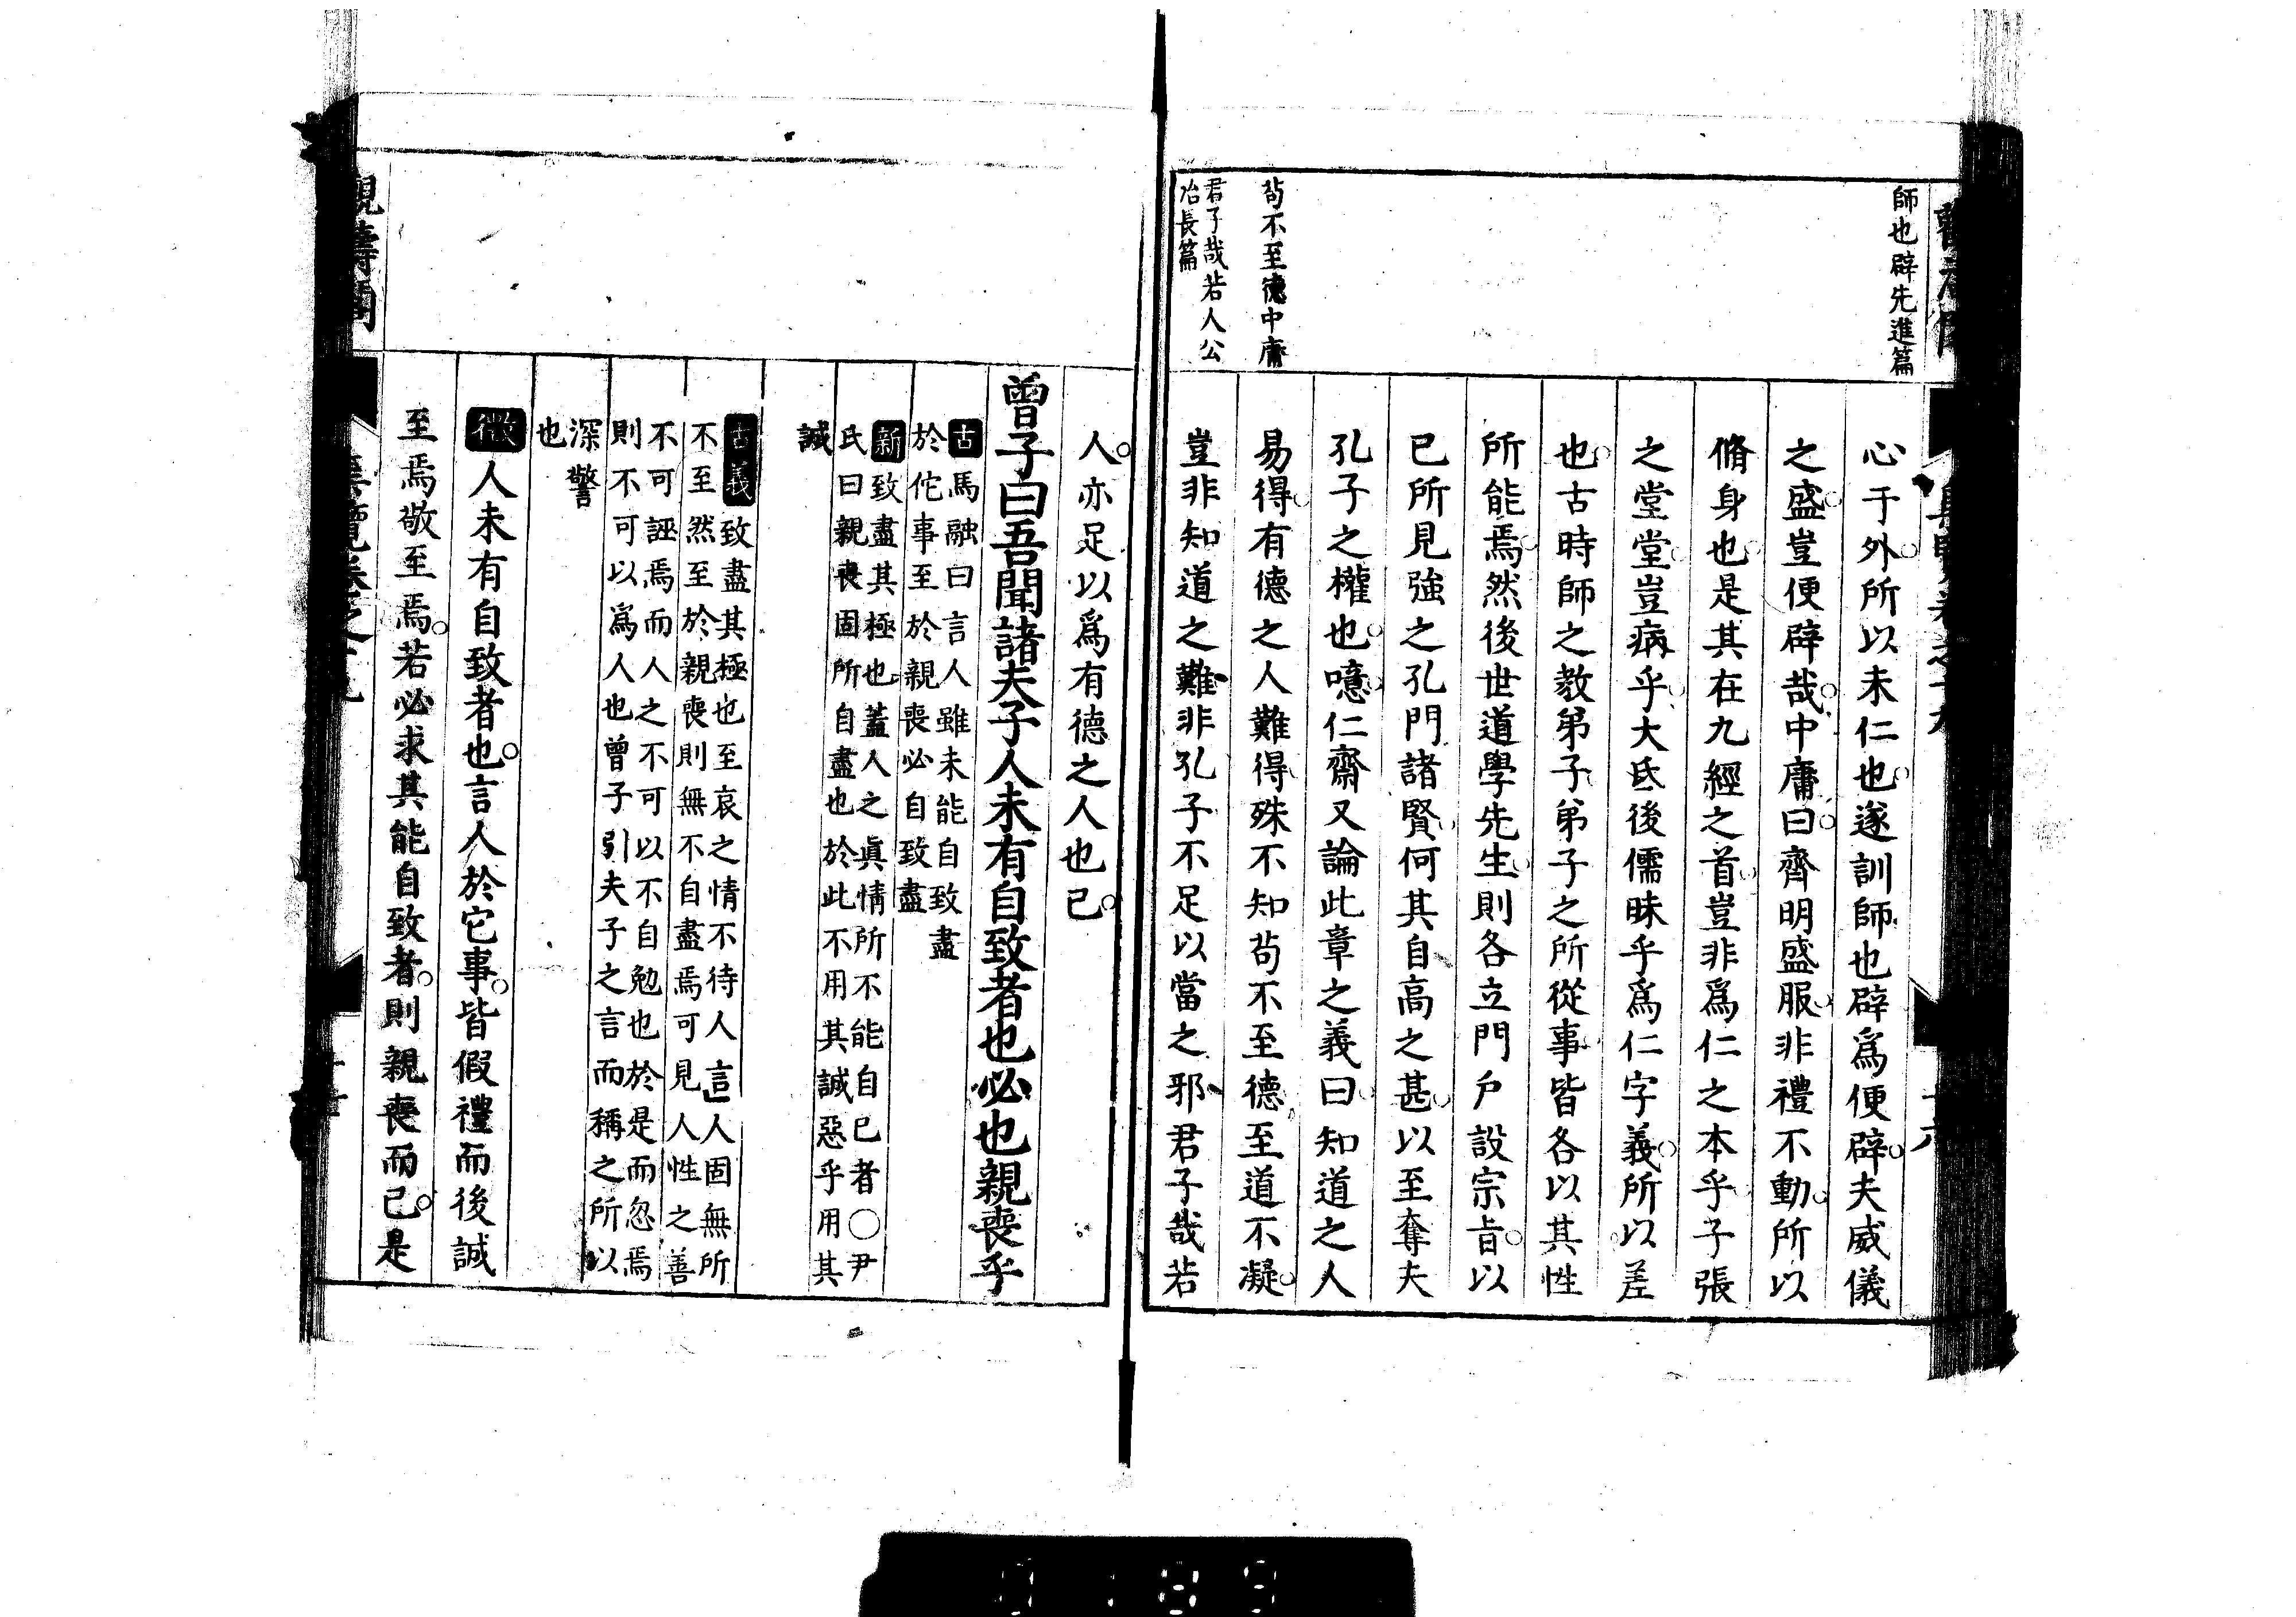 師也辟先進篇
苟不至德中庸
君子哉若人公
冶長篇
心于外所以未仁也遂訓師也辟爲便辟夫威儀
之盛豈便辟哉中庸曰齊明盛服非禮不動所以
脩身也是其在九經之首豈非爲仁之本乎子張
之堂堂豈病乎大氐後儒昧乎爲仁字義所以差
也古時師之教弟子弟子之所從事皆各以其性
所能焉然後世道學先生則各立門戶設宗旨以
已所見強之孔門諸賢何其自高之甚以至奪夫
孔子之權也噫仁齋又論此章之義曰知道之人
易得有德之人難得殊不知苟不至德至道不凝
豈非知道之難非孔子不足以當之邪君子哉若
人亦足以爲有德之人也已
曾子曰吾聞諸夫子人未有自致者也必也親喪乎
古馬融曰言人雖未能自致盡
於佗事至於親喪必自致盡
新致盡其極也蓋人之眞情所不能自已者○尹
氏曰親喪固所自盡也於此不用其誠惡乎用其
誠
古義致盡其極也至哀之情不待人言人固無所
不至然至於親喪則無不自盡焉可見人性之善
不可誣焉而人之不可以不自勉也於是而忽焉
則不可以爲人也曾子引夫子之言而稱之所以
深警
也
徵人未有自致者也言人於它事皆假禮而後誠
至焉敬至焉若必求其能自致者則親喪而已是